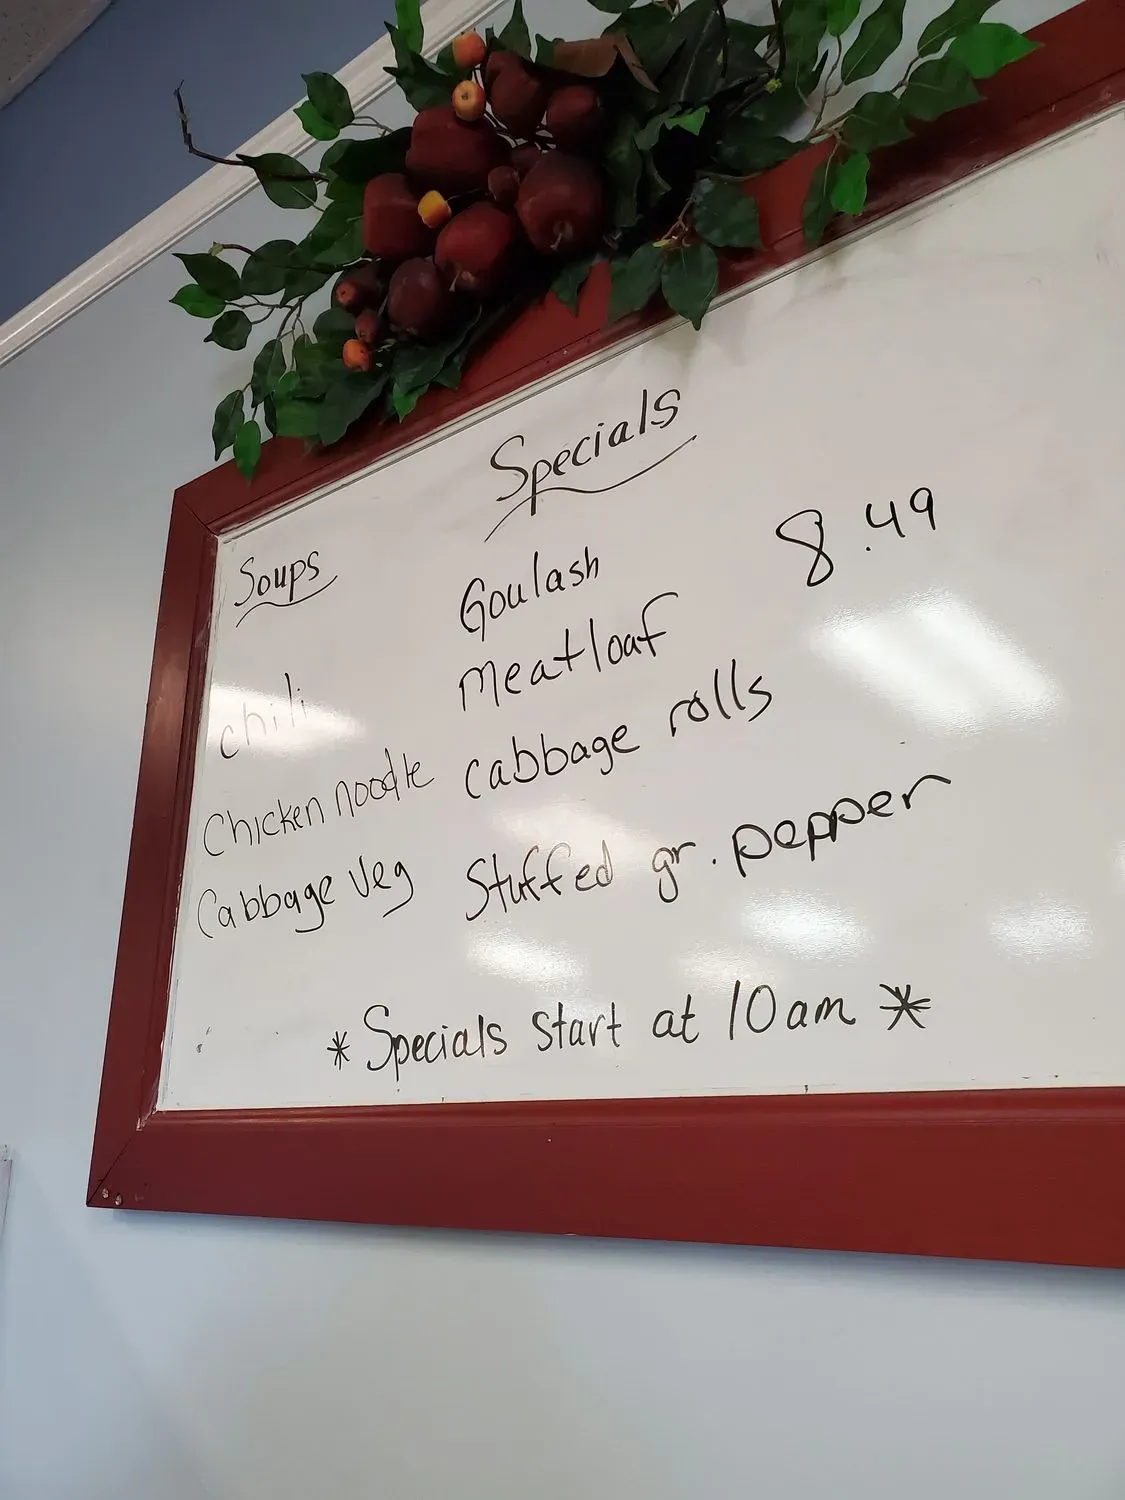 Specials
Soups
chili
Chicken noodle
Cabbage veg
Goulash 8.49
meatloaf
cabbage rolls
Stuffed gr. pepper
* Specials start at 10am *